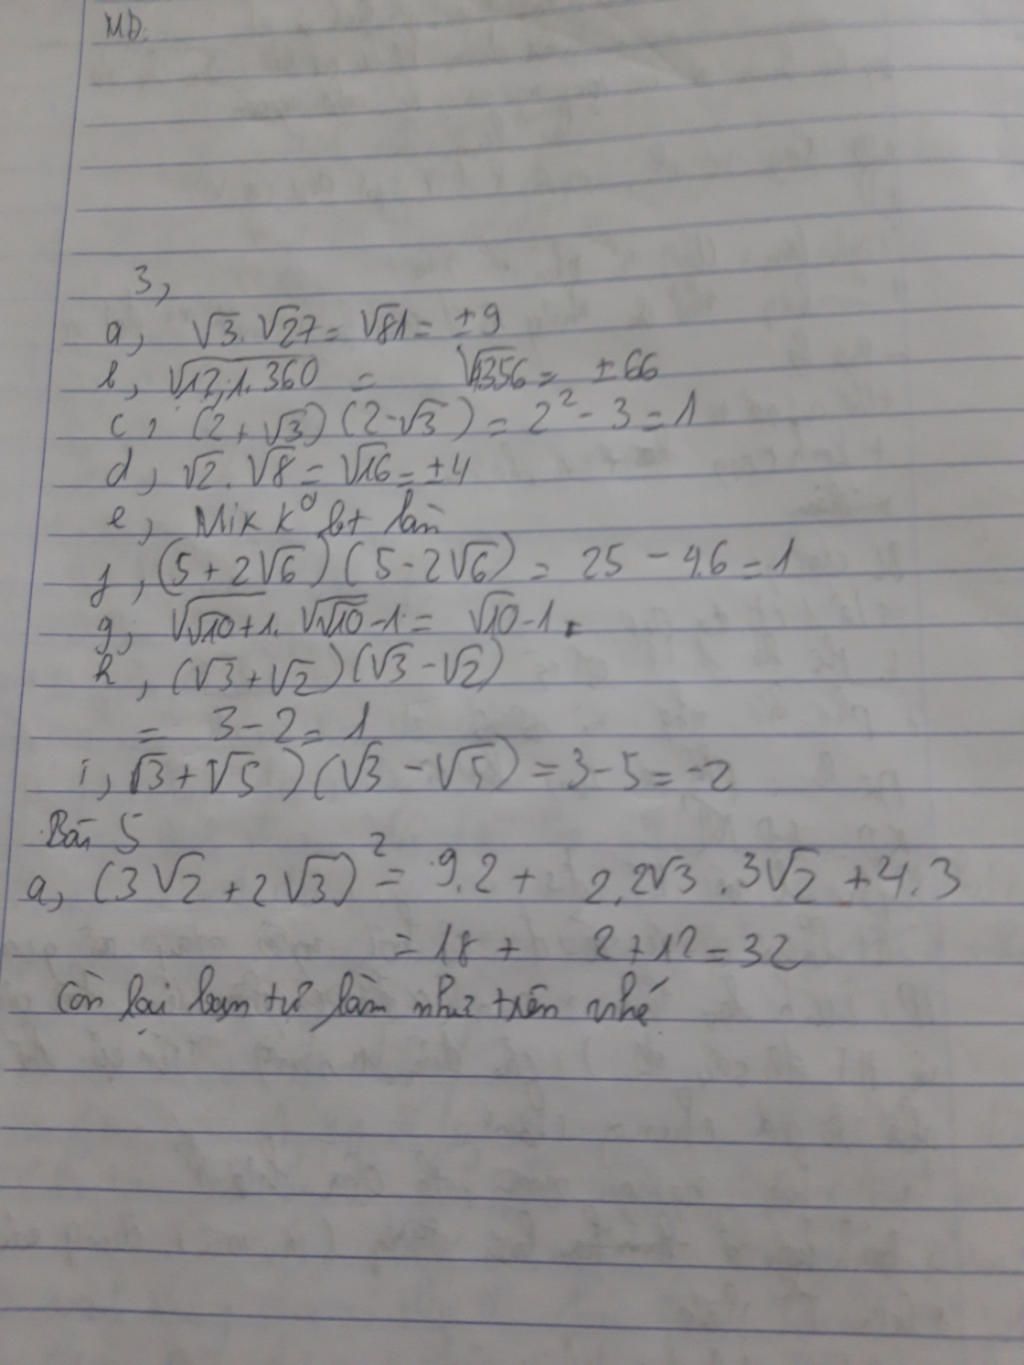 MĐ.
3,
a, √3.√27 = √81 = ±9
b, √12,1.360 = √4356 = ±66
c, (2+√3)(2-√3) = 2² - 3 = 1
d, √2.√8 = √16 = ±4
e, Mik k⁰ bt làm
f, (5+2√6)(5-2√6) = 25 - 4.6 = 1
g, √(√10+1).√(√10-1) = √10-1.
h, (√3+√2)(√3-√2)
= 3-2 = 1
i, √3+√5)(√3-√5) = 3-5 = -2
Bài 5
a, (3√2+2√3)² = 9.2 + 2.2√3.3√2 + 4.3
= 18 + 2+12 = 32
Còn lại bạn tự làm như trên nhé